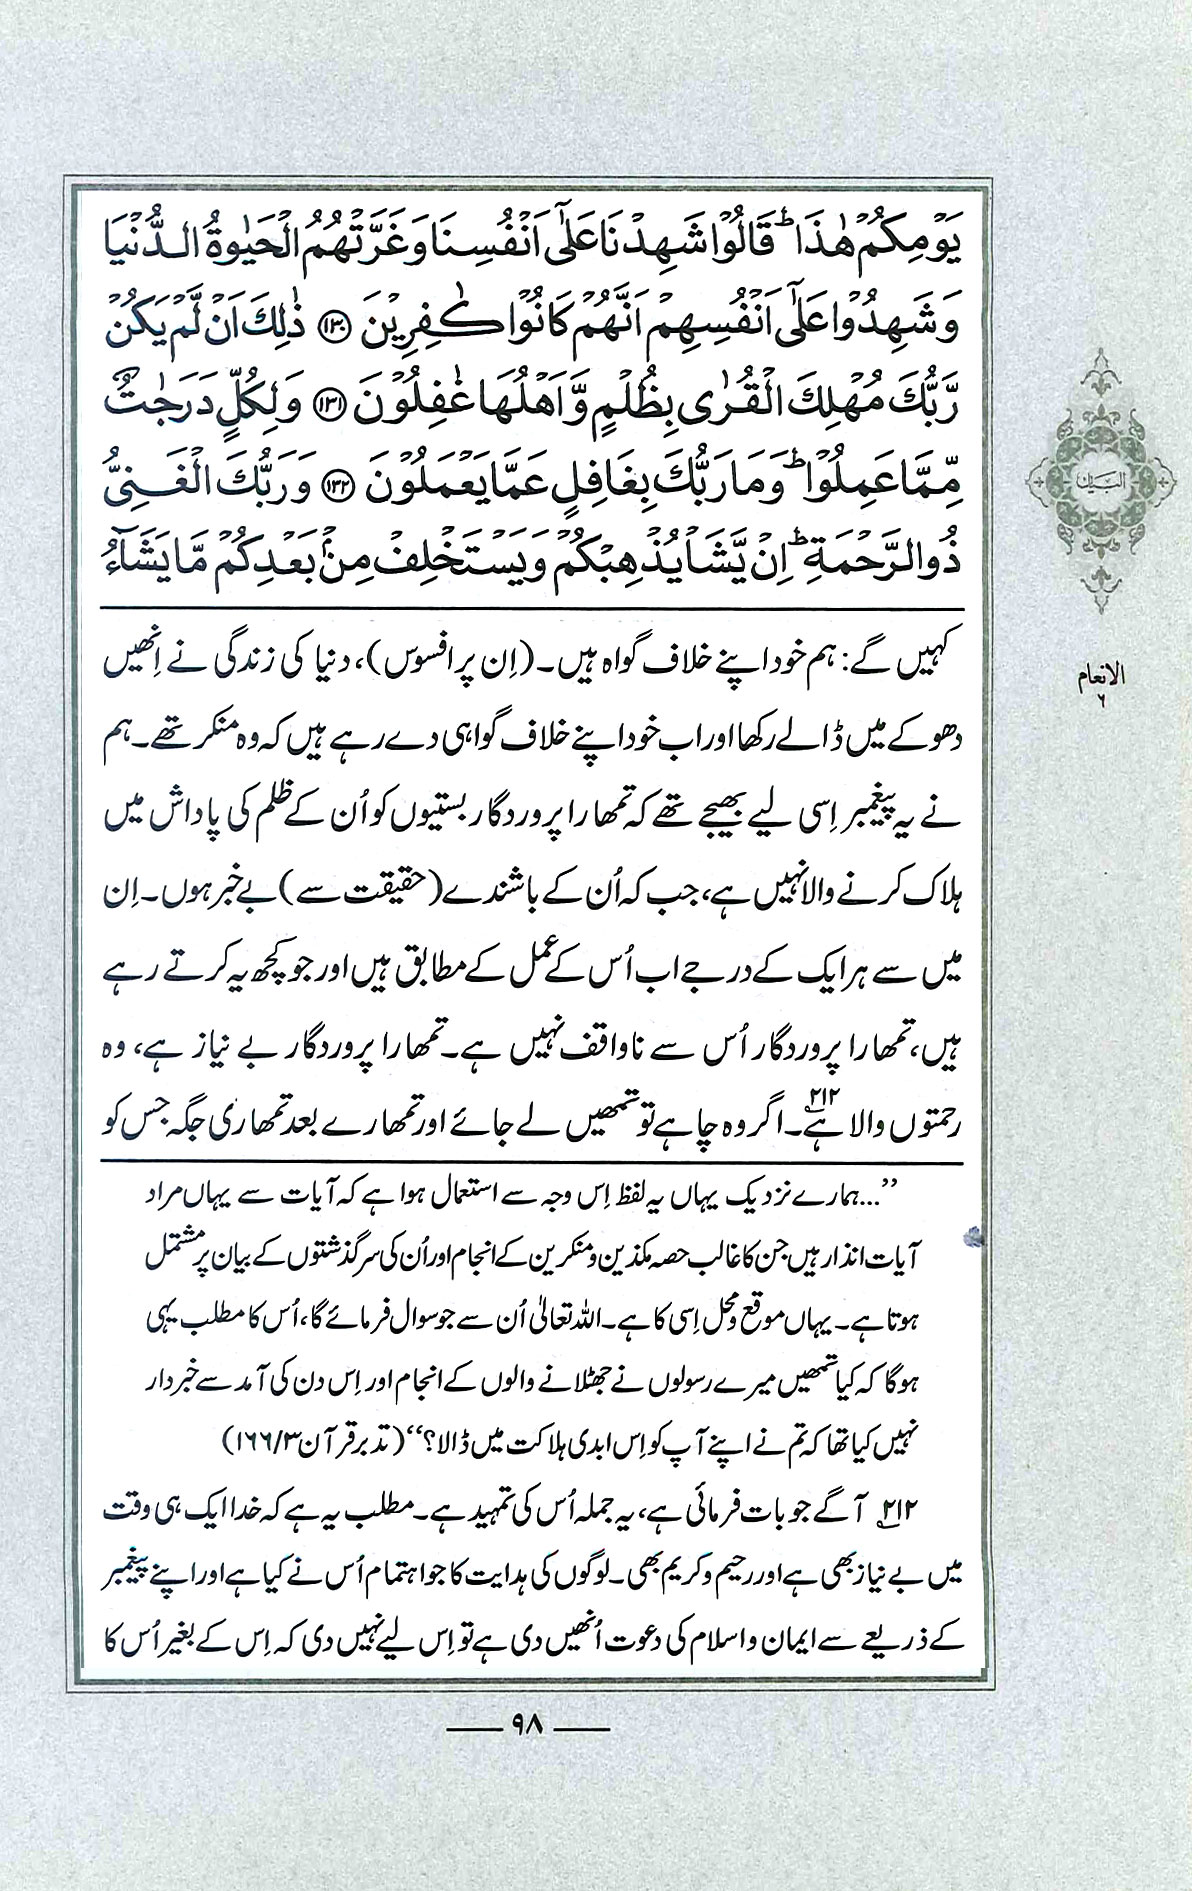 يَوْمِكُمْ هٰذَا ؕ قَالُوْا شَهِدْنَا عَلٰٓى اَنْفُسِنَا وَغَرَّتْهُمُ الْحَيٰوةُ الدُّنْيَا
وَشَهِدُوْا عَلٰٓى اَنْفُسِهِمْ اَنَّهُمْ كَانُوْا كٰفِرِيْنَ ﴿۱۳۰﴾ ذٰلِكَ اَنْ لَّمْ يَكُنْ
رَّبُّكَ مُهْلِكَ الْقُرٰى بِظُلْمٍ وَّاَهْلُهَا غٰفِلُوْنَ ﴿۱۳۱﴾ وَلِكُلٍّ دَرَجٰتٌ
مِّمَّا عَمِلُوْا ؕ وَمَا رَبُّكَ بِغَافِلٍ عَمَّا يَعْمَلُوْنَ ﴿۱۳۲﴾ وَرَبُّكَ الْغَنِيُّ
ذُو الرَّحْمَةِ ؕ اِنْ يَّشَاْ يُذْهِبْكُمْ وَيَسْتَخْلِفْ مِنْۢ بَعْدِكُمْ مَّا يَشَآءُ
کہیں گے: ہم خود اپنے خلاف گواہ ہیں۔ (اِن پر افسوس)، دنیا کی زندگی نے اِنھیں
دھوکے میں ڈالے رکھا اور اب خود اپنے خلاف گواہی دے رہے ہیں کہ وہ منکر تھے۔ ہم
نے یہ پیغمبر اِسی لیے بھیجے تھے کہ تمھارا پروردگار بستیوں کو اُن کے ظلم کی پاداش میں
ہلاک کرنے والا نہیں ہے، جب کہ اُن کے باشندے (حقیقت سے) بے خبر ہوں۔ اِن
میں سے ہر ایک کے درجے اب اُس کے عمل کے مطابق ہیں اور جو کچھ یہ کرتے رہے
ہیں، تمھارا پروردگار اُس سے ناواقف نہیں ہے۔ تمھارا پروردگار بے نیاز ہے، وہ
رحمتوں والا ہے۲۱۲۔ اگر وہ چاہے تو تمھیں لے جائے اور تمھارے بعد تمھاری جگہ جس کو
”...ہمارے نزدیک یہاں یہ لفظ اِس وجہ سے استعمال ہوا ہے کہ آیات سے یہاں مراد
آیات انذار ہیں جن کا غالب حصہ مکذبین و منکرین کے انجام اور اُن کی سرگذشتوں کے بیان پر مشتمل
ہوتا ہے۔ یہاں موقع و محل اِسی کا ہے۔ اللہ تعالیٰ اُن سے جو سوال فرمائے گا، اُس کا مطلب یہی
ہوگا کہ کیا تمھیں میرے رسولوں نے جھٹلانے والوں کے انجام اور اِس دن کی آمد سے خبردار
نہیں کیا تھا کہ تم نے اپنے آپ کو اِس ابدی ہلاکت میں ڈالا؟“ (تدبر قرآن ۳/۱۶۶)
۲۱۲ آگے جو بات فرمائی ہے، یہ جملہ اُس کی تمہید ہے۔ مطلب یہ ہے کہ خدا ایک ہی وقت
میں بے نیاز بھی ہے اور رحیم و کریم بھی۔ لوگوں کی ہدایت کا جو اہتمام اُس نے کیا ہے اور اپنے پیغمبر
کے ذریعے سے ایمان و اسلام کی دعوت اُنھیں دی ہے تو اِس لیے نہیں دی کہ اِس کے بغیر اُس کا
البیان
الانعام
۶
۹۸